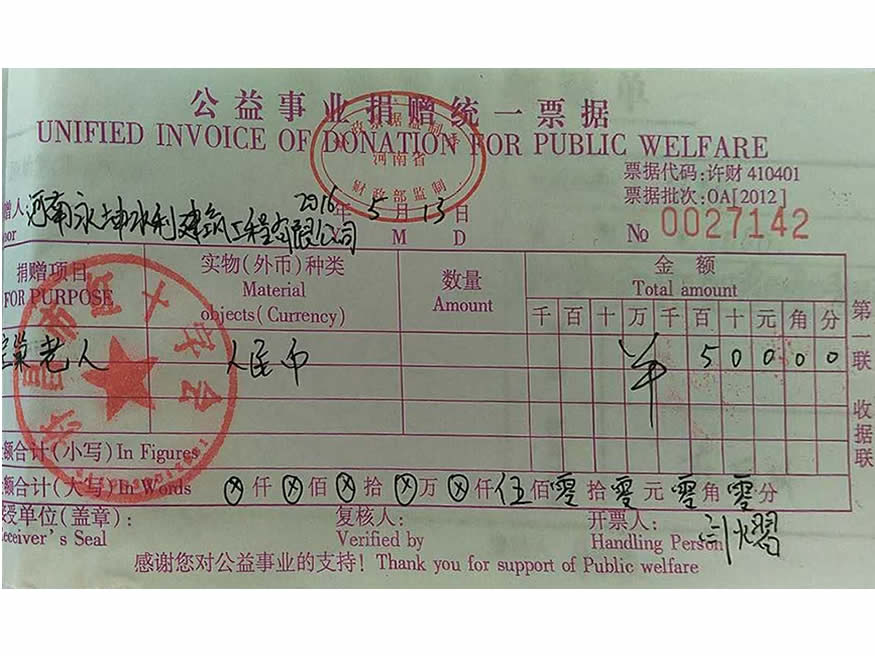 公益事业捐赠统一票据
UNIFIED INVOICE OF DONATION FOR PUBLIC WELFARE
财政票据监制章
河南省
财政部监制
票据代码:许财 410401
票据批次:OA[2012]
赠人:河南永坤水利建筑工程有限公司 2016年5月13日
nor M D
№ 0027142
捐赠项目 实物(外币)种类 数量 金额
FOR PURPOSE Material Amount Total amount
objects(Currency)
千 百 十 万 千 百 十 元 角 分
老人 人民币 ¥ 5 0 0 0 0
金额合计(小写)In Figures
金额合计(大写)In Words ⊗仟⊗佰⊗拾⊗万⊗仟伍佰零拾零元零角零分
受单位(盖章): 复核人: 开票人:
eceiver's Seal Verified by Handling Person
感谢您对公益事业的支持! Thank you for support of Public welfare
第一联 收据联
许昌市红十字会